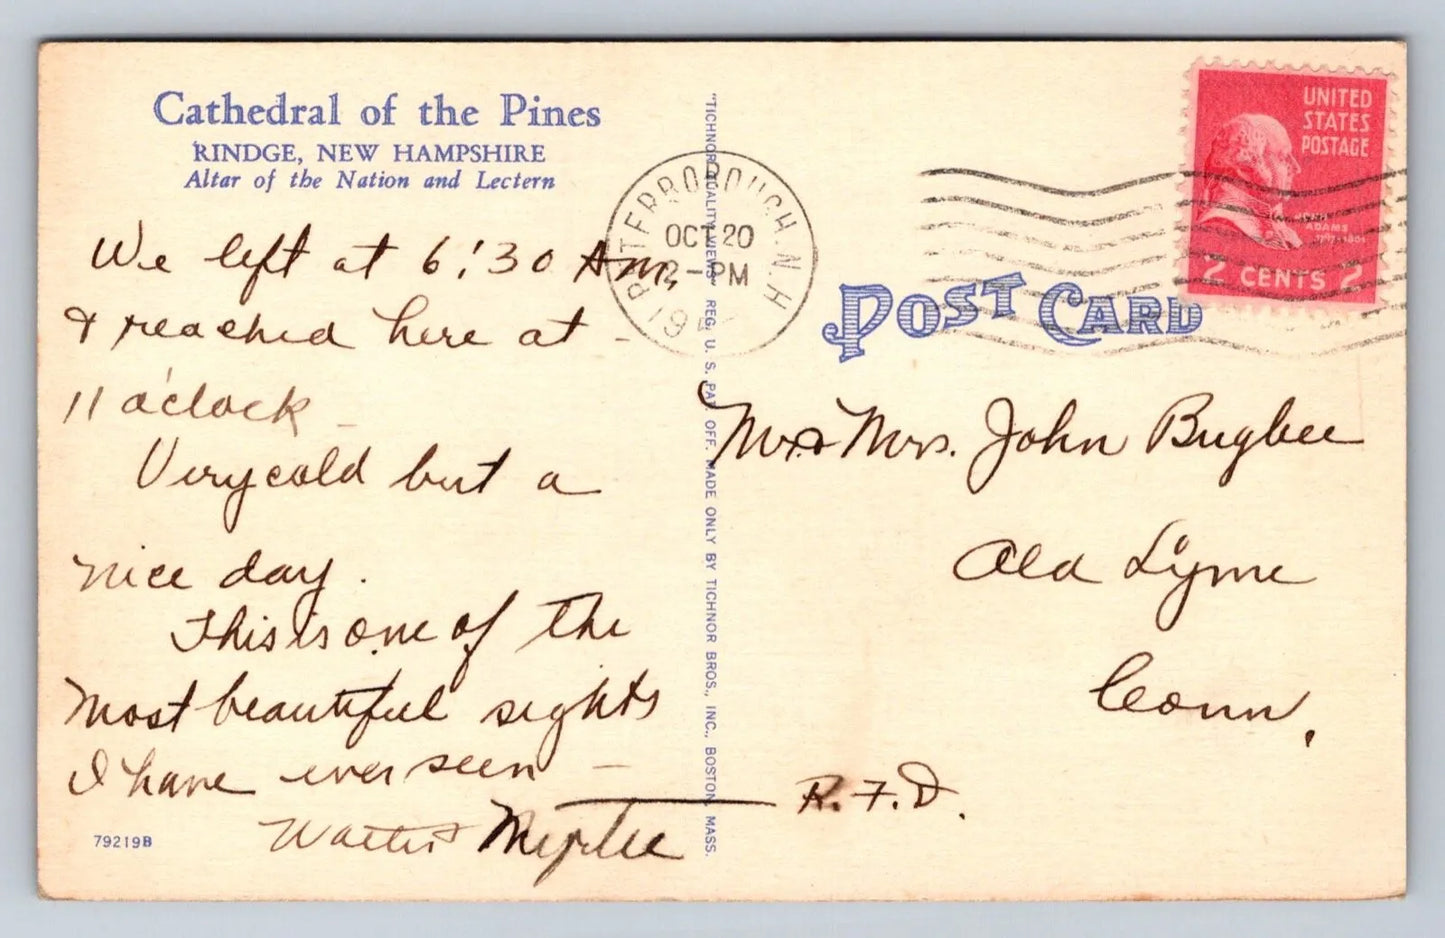 Cathedral of the Pines
RINDGE, NEW HAMPSHIRE
Altar of the Nation and Lectern
We left at 6:30 Am,
& reached here at -
11 o'clock -
Very cold but a
nice day.
This is one of the
most beautiful sights
I have ever seen -
Myrtle
79219B
"TICHNOR QUALITY VIEWS" REG. U. S. PAT. OFF. MADE ONLY BY TICHNOR BROS., INC., BOSTON, MASS.
PETERBOROUGH. N. H.
OCT 20
2-PM
19
UNITED
STATES
POSTAGE
ADAMS
2 CENTS 2
POST CARD
Mr & Mrs. John Bugbee
Old Lyme
Conn,
R.F.D.